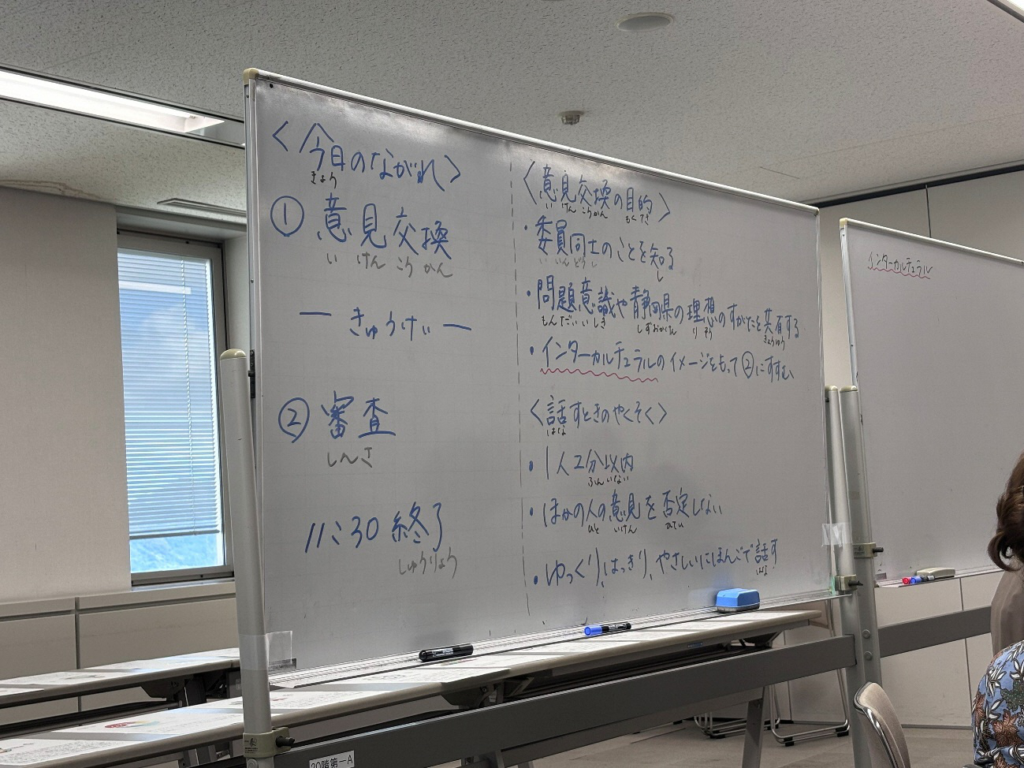 ＜今日のながれ＞
きょう
① 意見交換
いけんこうかん
ー きゅうけい ー
② 審査
しんさ
11:30 終了
しゅうりょう
＜意見交換の目的＞
けん こうかん もくてき
・委員同士のことを知る
いいんどうし し
・問題意識や静岡県の理想のすがたを共有する
もんだいいしき しずおかけん りそう きょうゆう
・インターカルチュラルのイメージをもって②にすすむ
＜話すときのやくそく＞
はな
・1人2分以内
ふんいない
・ほかの人の意見を否定しない
ひと いけん ひてい
・ゆっくり、はっきり、やさしいにほんごで話す
はな
インターカルチュラル
20階第一A